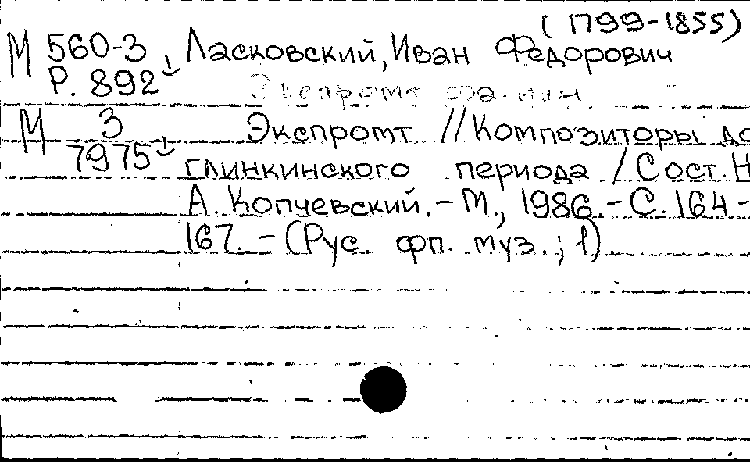 (1799-1855)
М 560-3 Ласковский, Иван Федорович
Р. 892 Экспромт
М 3 Экспромт // Композиторы до
7975 глинкинского периода / Сост. Н
А. Копчевский. - М., 1986. - С. 164-
167. - (Рус. фп. муз.; 1)